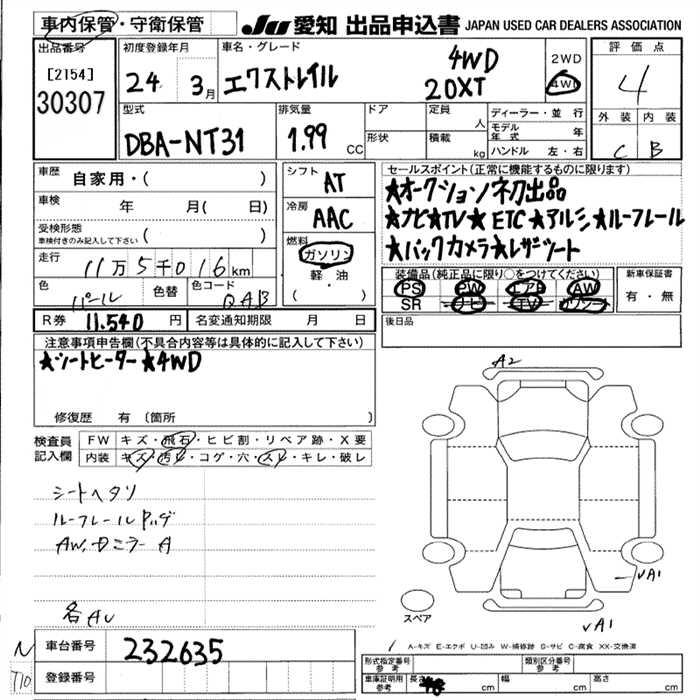 車内保管・守衛保管 JU 愛知 出品申込書 JAPAN USED CAR DEALERS ASSOCIATION
出品番号 初度登録年月 車名・グレード 評価点
[2154] 4WD 2WD
30307 24 3月 エクストレイル 20XT 4WD 4
型式 排気量 ドア 定員 人 ディーラー・並行 外装 内装
DBA-NT31 1.99 CC 形状 積載 kg モデル年式 年 C B
ハンドル 左・右
車歴 自家用・( ) シフト AT セールスポイント(正常に機能するものに限ります)
車検 年 月( 日) 冷房 AAC ★オークション初出品
受検形態 ( ) ★ナビ★TV★ ETC ★アルミ★ルーフレール
車検付きのみ記入して下さい 燃料 ガソリン ★バックカメラ★レザーシート
走行 11万5千016km 軽・油
色 パール 色替 色コード QAB ( )
装備品(純正品に限り○をつけてください) 新車保証書
PS PW エアB AW 有・無
SR ナビ TV
R券 11.540 円 名変通知期限 月 日 後日品
注意事項申告欄(不具合内容等は具体的に記入して下さい)
★シートヒーター★4WD
修復歴 有 (箇所 )
検査員記入欄 FW キズ・飛石・ヒビ割・リペア跡・X要
内装 キズ・汚レ・コゲ・穴・スレ・キレ・破レ
シートヘタリ
AW, ドミラー A
各AU
A2
VA1
スペア
VA1
A-キズ E-エクボ U-凹み W-補修跡 S-サビ C-腐食 XX-交換済
N 車台番号 232635
登録番号
型式指定番号 参考 類別区分番号 参考
車庫証明用 参考 長さ cm 幅 cm 高さ cm